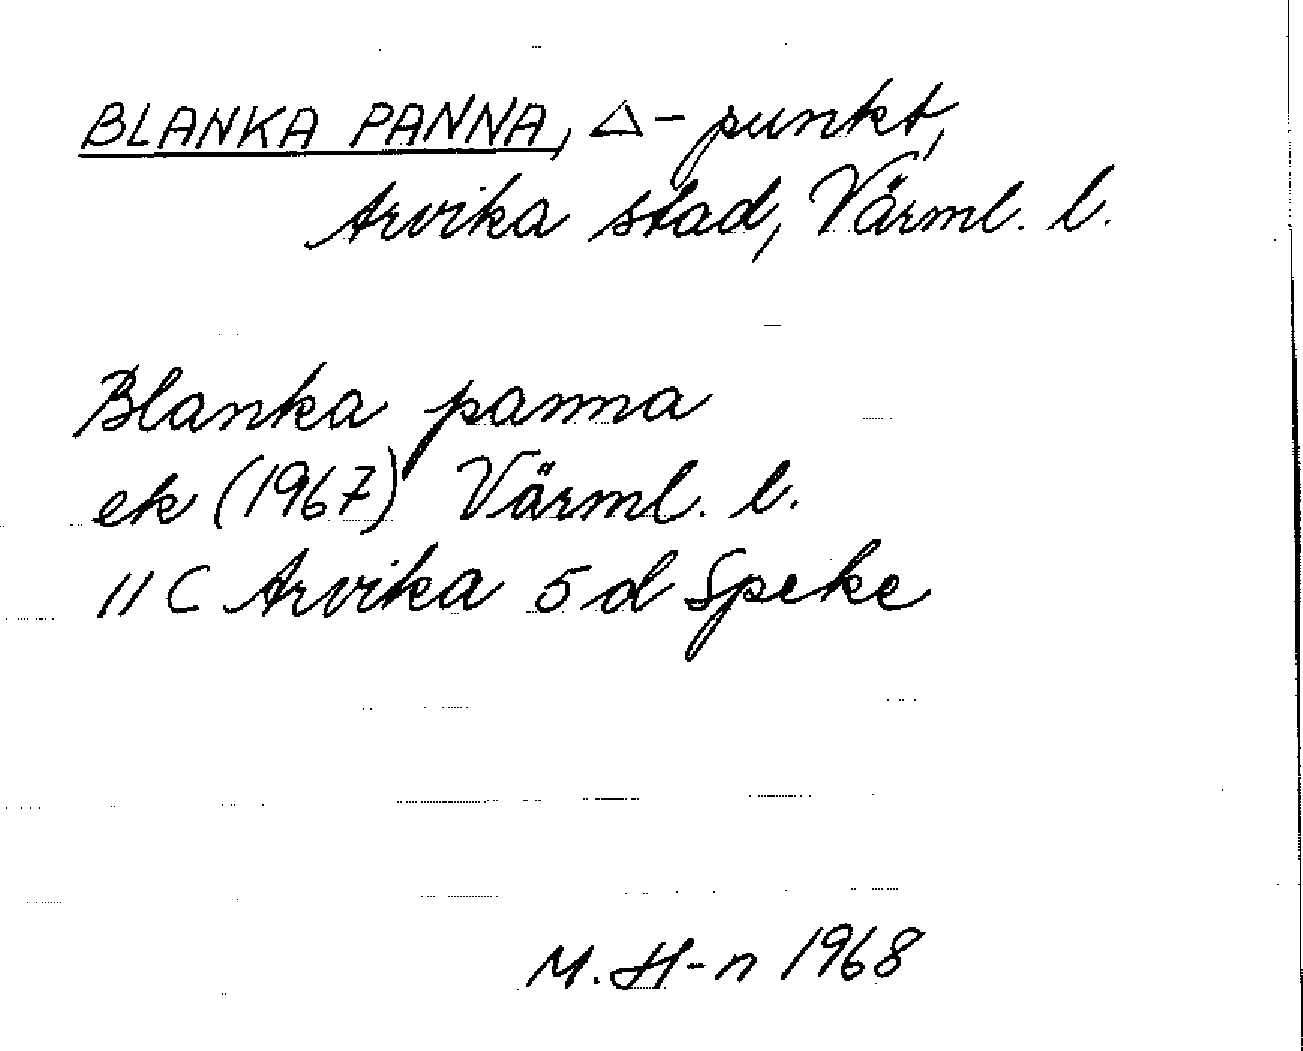 BLANKA PANNA, △-punkt,
Arvika stad, Värml. l.
Blanka panna
ek (1967) Värml. l.
11 C Arvika 5 d Speke
M. H-n 1968